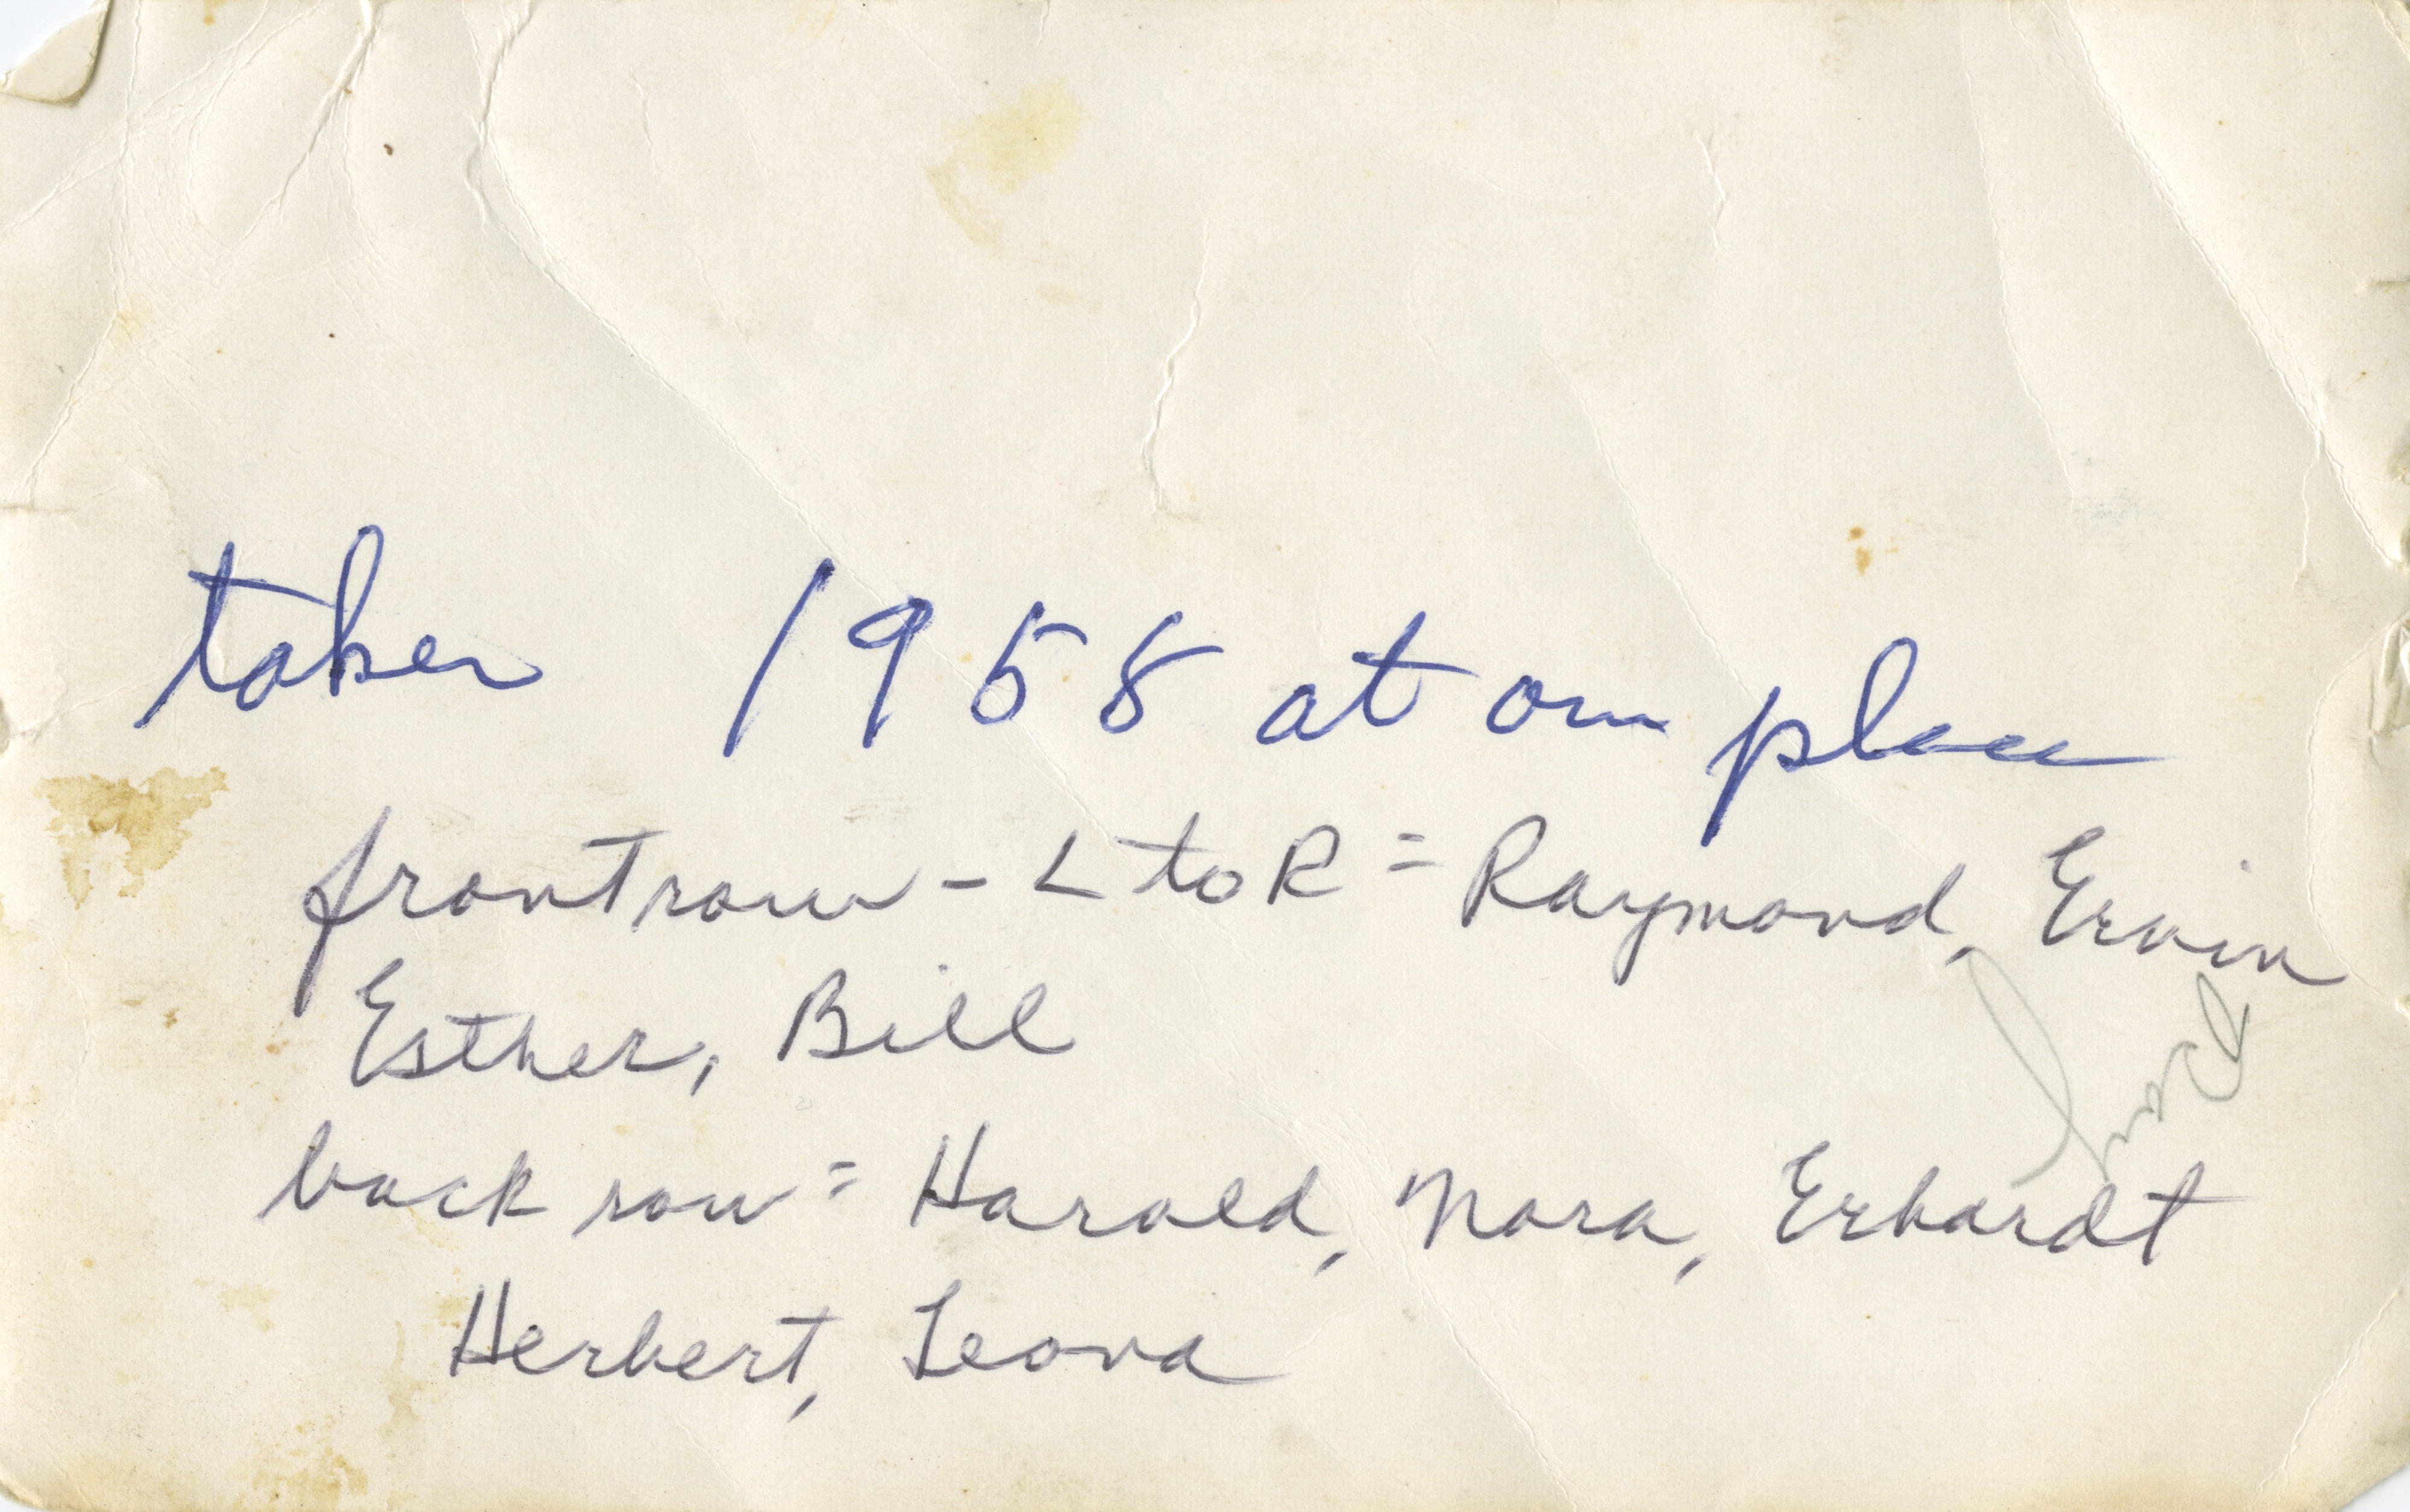 taken 1958 at our place
front row - L to R = Raymond, Ervin
Esther, Bill
back row = Harold, Nora, Erhardt
Herbert, Leona